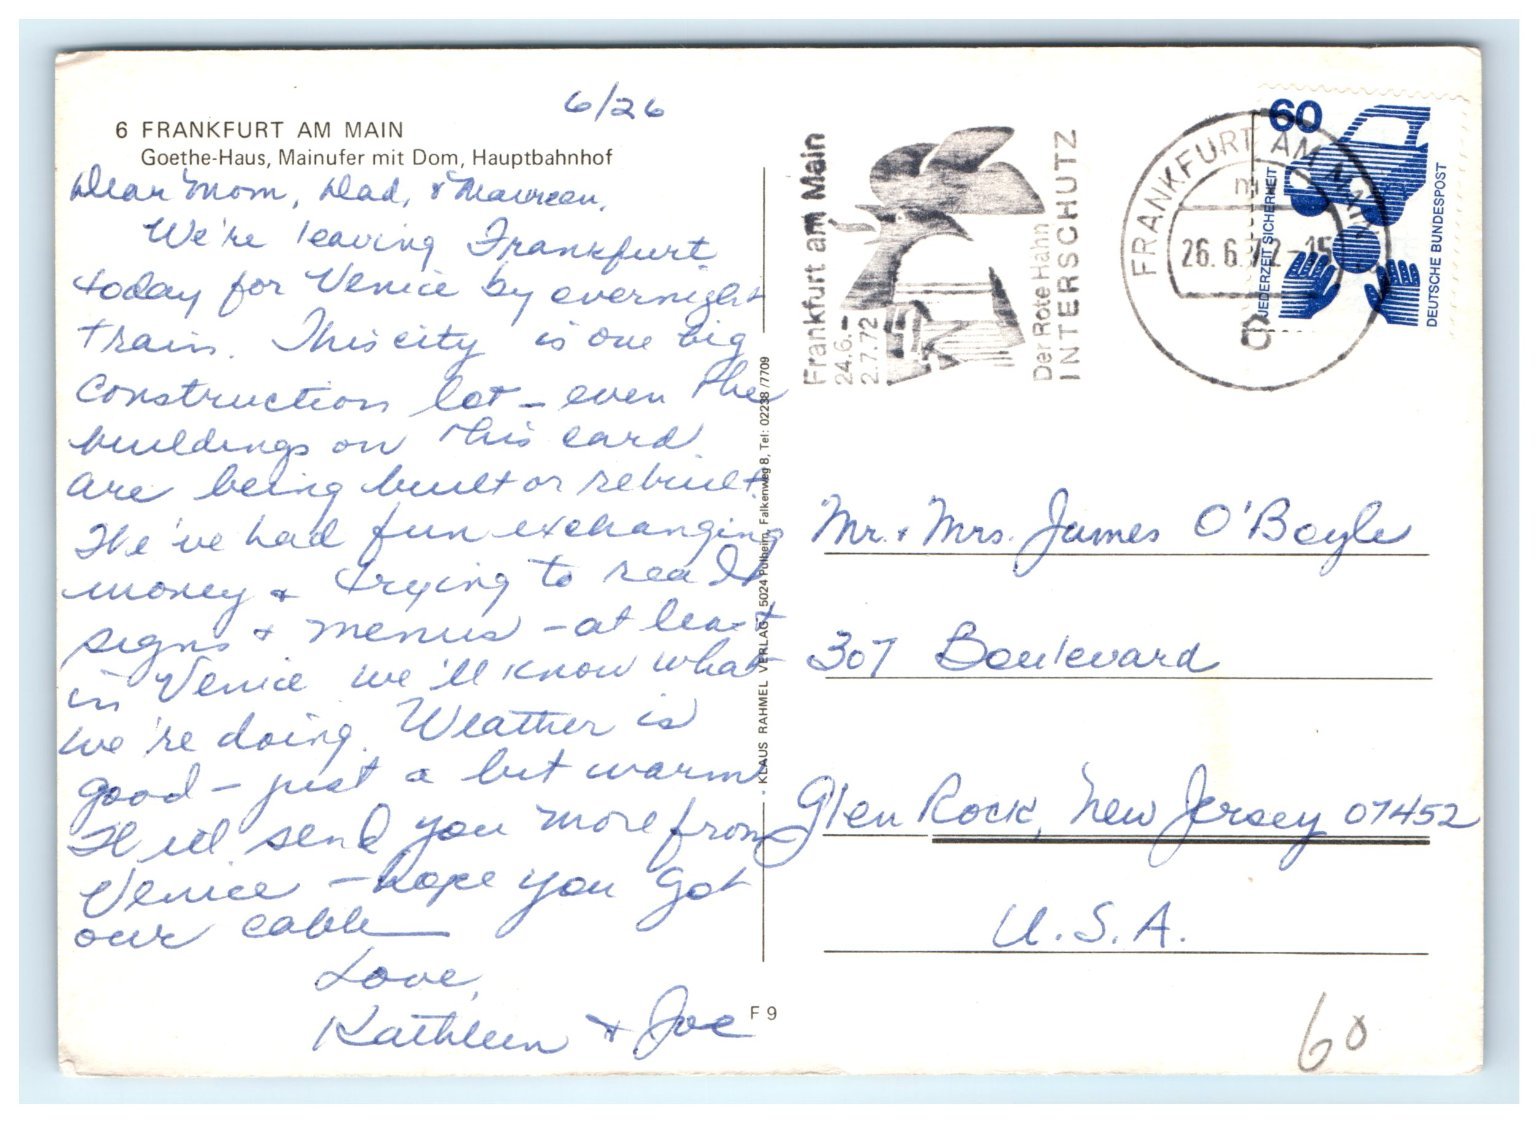 6/26
6 FRANKFURT AM MAIN
Goethe-Haus, Mainufer mit Dom, Hauptbahnhof
Dear Mom, Dad, & Maureen,
We're leaving Frankfurt
today for Venice by overnight
train. This city is one big
construction lot - even the
buildings on this card
are being built or rebuilt.
We've had fun exchanging
money & trying to read
signs & menus - at least
in Venice we'll know what
we're doing. Weather is
good - just a bit warm
We'll send you more from
Venice - hope you got
our cable
Love,
Kathleen & Joe
KLAUS RAHMEL VERLAG, 5024 Pulheim, Falkenweg 8, Tel: 02238/7709
F 9
Frankfurt am Main
24.6.-
2.7.72
Der Rote Hahn
INTERSCHUTZ
FRANKFURT AM MAIN
m
26.6.72-15
60
JEDERZEIT SICHERHEIT
DEUTSCHE BUNDESPOST
Mr. & Mrs. James O'Boyle
307 Boulevard
Glen Rock, New Jersey 07452
U.S.A.
60